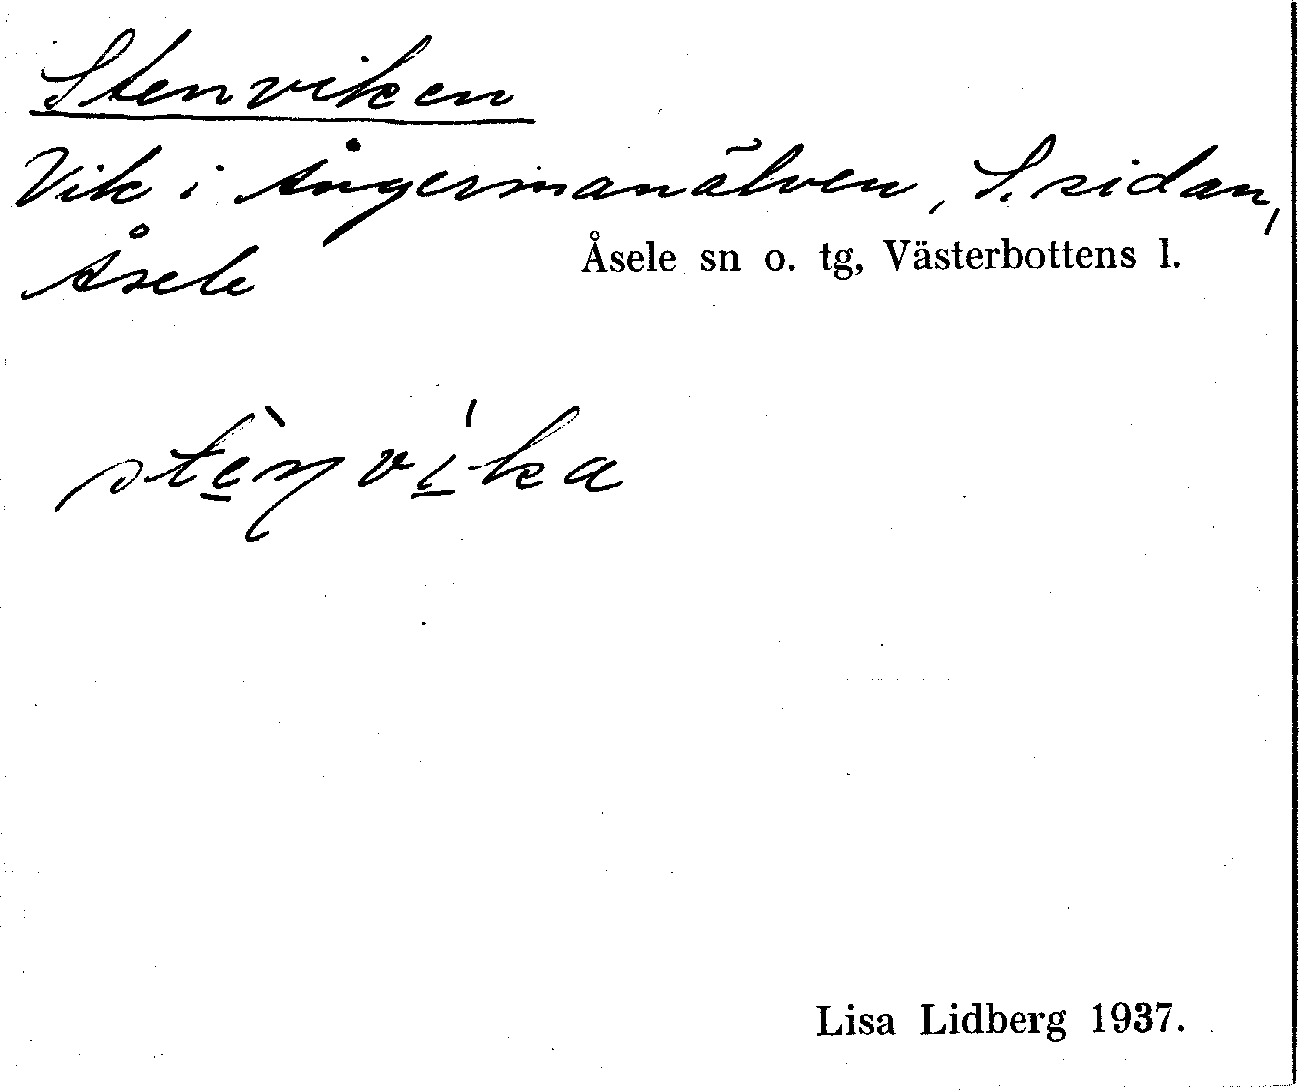 Stenviken
Vik i Ångermanälven, S. sidan,
Åsele
Åsele sn o. tg, Västerbottens l.
stè̱ŋví̱ka
Lisa Lidberg 1937.